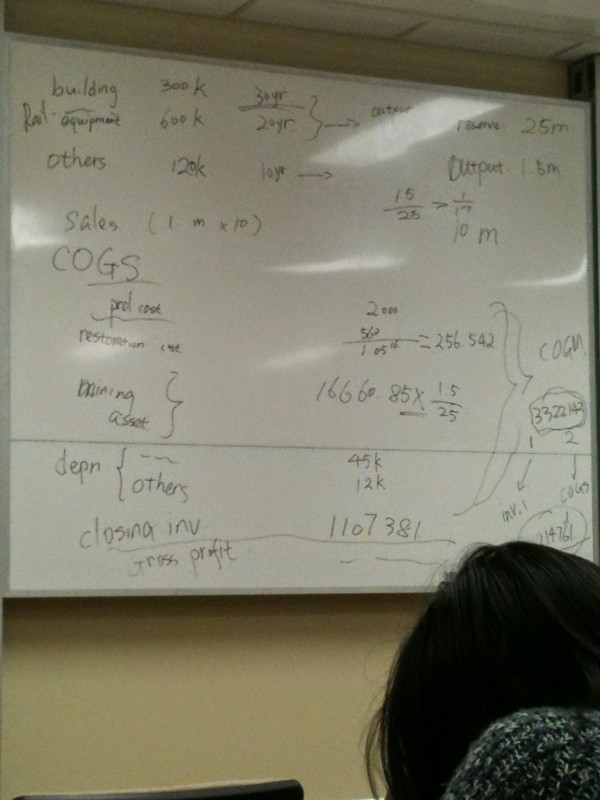 building 300k 30yr
Rail. equipment 600k 20yr → output reserve 25m
others 120k 10yr → Output 1.5m
1.5/25 > 1/17
Sales (1. m x 10) 10 m
COGS
prod cost 2000
restoration cost 560/1.05 = 256.542 COGM
mining asset 16660.85 x 1.5/25 3322143
1 2
depn 45k
others 12k inv.1 COGS
closing inv 1107381
Gross profit